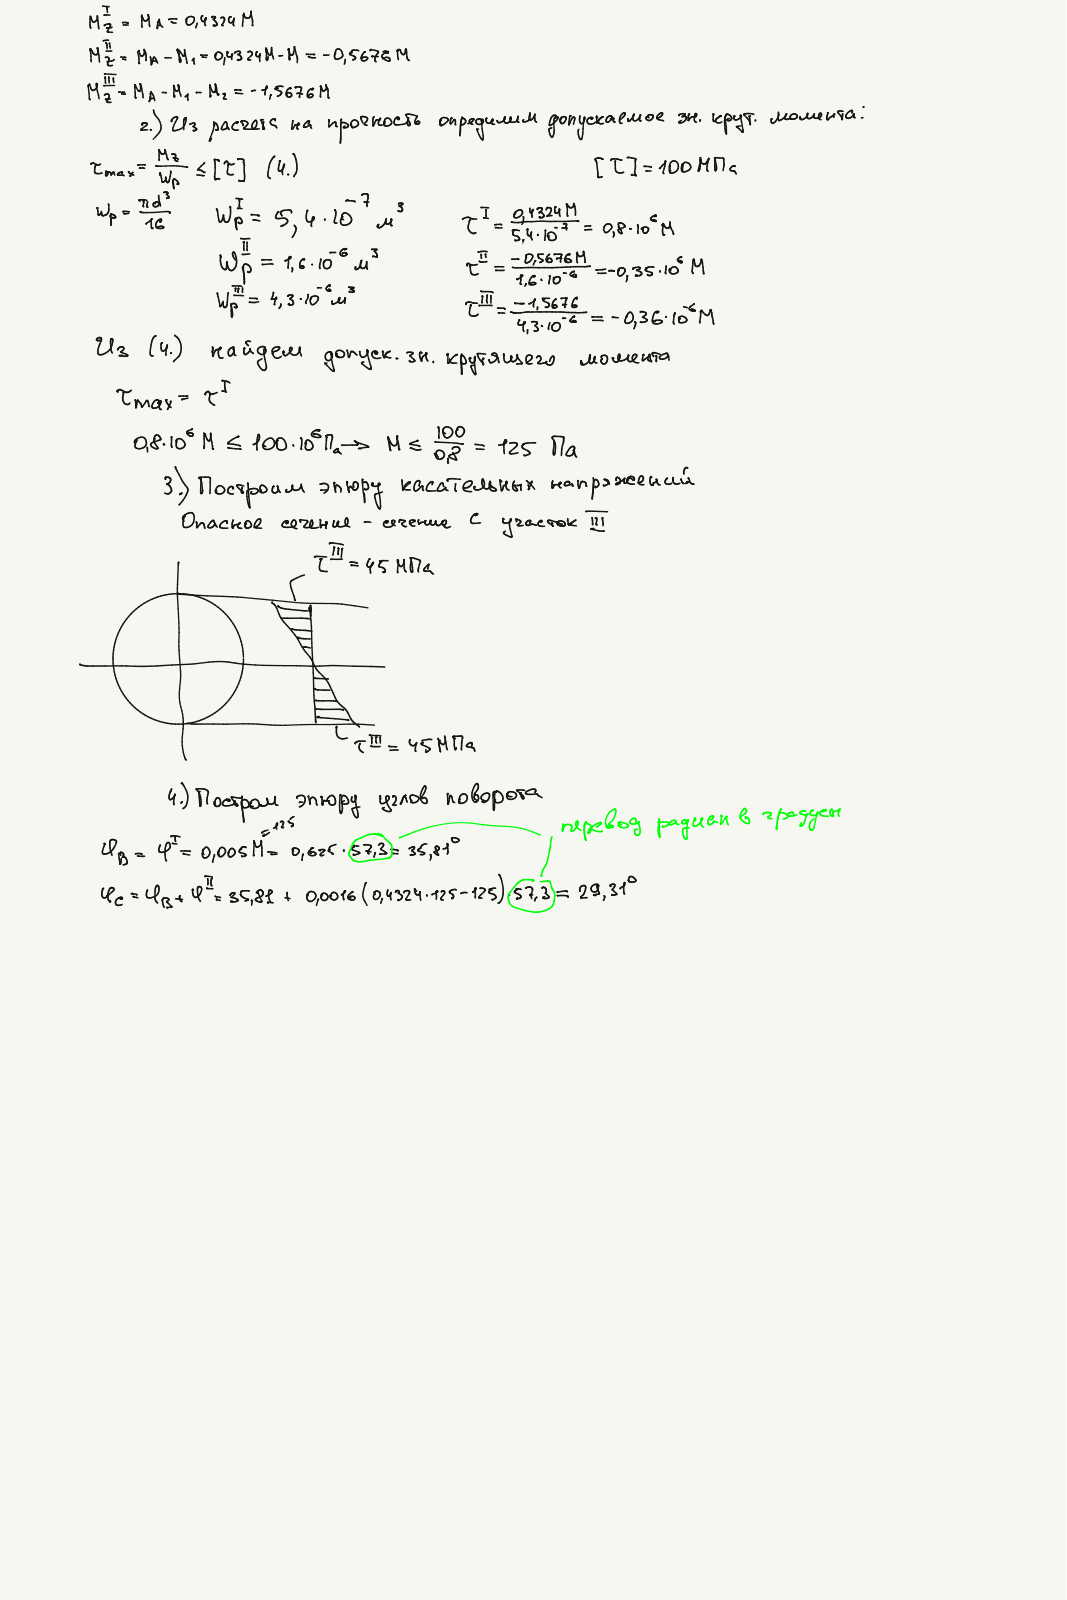 M_z^I = M_A = 0,4324 M
M_z^II = M_A - M_1 = 0,4324 M - M = -0,5676 M
M_z^III = M_A - M_1 - M_2 = -1,5676 M
2.) Из расчета на прочность определим допускаемое зн. крут. момента:
τ_max = M_z/W_p ≤ [τ] (4.) [τ] = 100 МПа
W_p = πd^3/16 W_p^I = 5,4·10^-7 м^3 τ^I = 0,4324 M/5,4·10^-7 = 0,8·10^6 M
W_p^II = 1,6·10^-6 м^3 τ^II = -0,5676 M/1,6·10^-6 = -0,35·10^6 M
W_p^III = 4,3·10^-6 м^3 τ^III = -1,5676/4,3·10^-6 = -0,36·10^-6 M
Из (4.) найдем допуск. зн. крутящего момента
τ_max = τ^I
0,8·10^6 M ≤ 100·10^6 Па → M ≤ 100/0,8 = 125 Па
3.) Построим эпюру касательных напряжений
Опасное сечение - сечение C участок III
τ^III = 45 МПа
τ^III = 45 МПа
4.) Постром эпюру углов поворота
перевод радиан в градусы
= 125
φ_B = φ^I = 0,005 M = 0,625 · 57,3 = 35,81°
φ_C = φ_B + φ^II = 35,81 + 0,0016 (0,4324·125-125) 57,3 = 29,31°